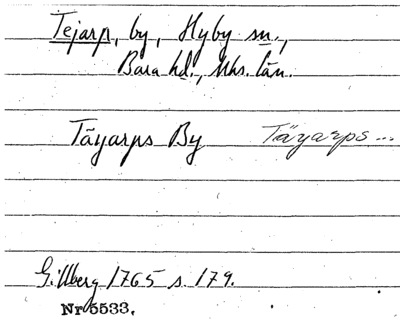 Tejarp, by, Hyby sn.,
Bara hd., Mhs. län.
Täyarps By Täyarps...
Gillberg 1765 s. 179.
Nr 5533.